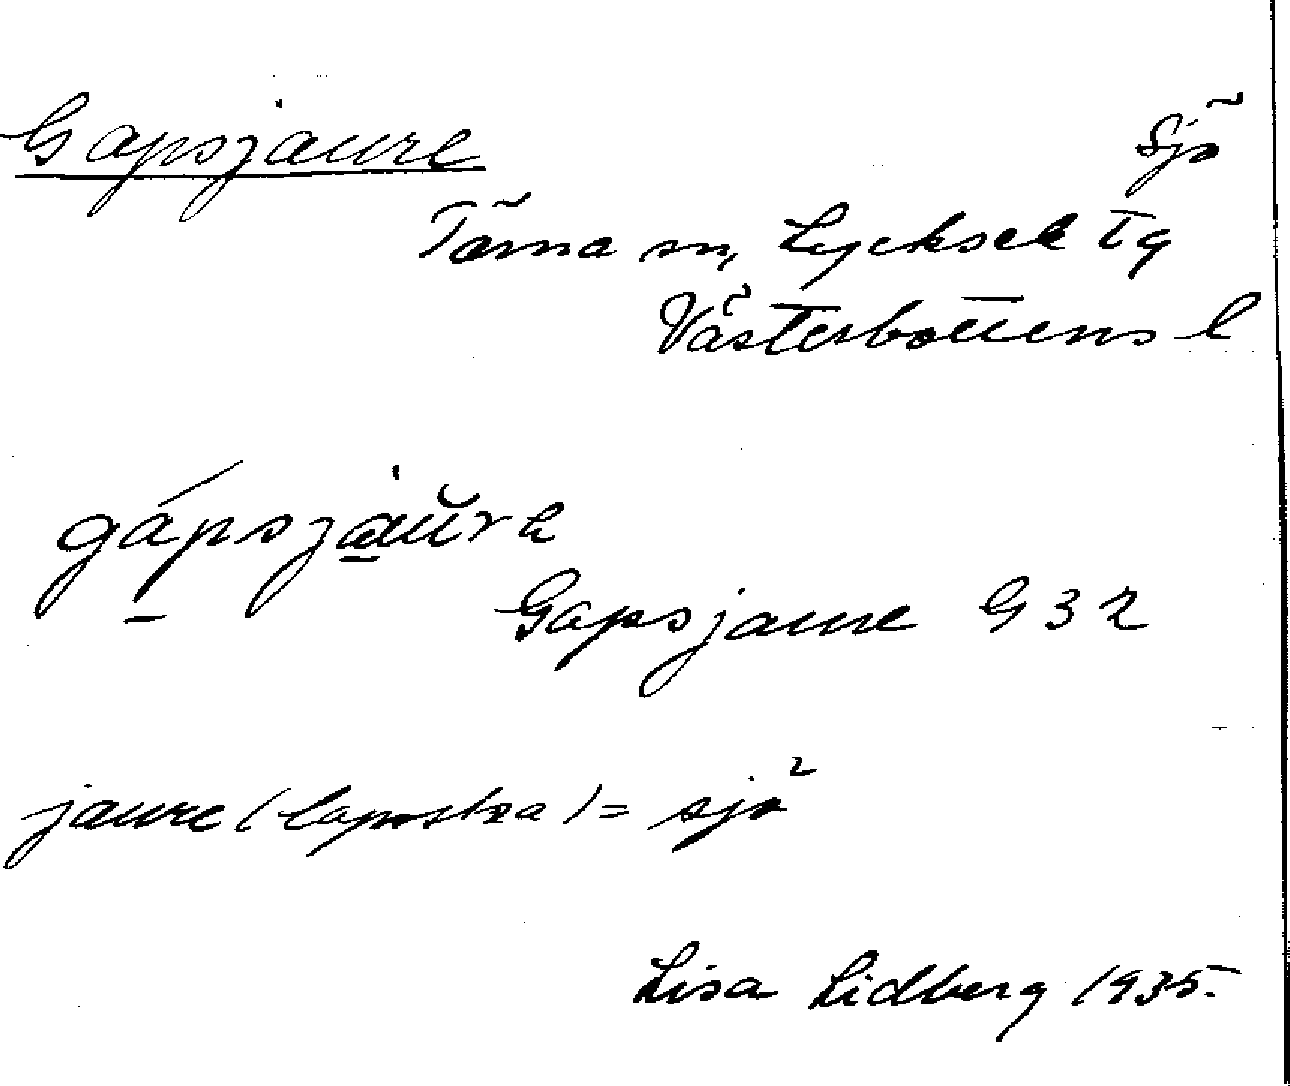 Gapsjaure
Sjö
Tärna sn, Lycksele tg
Västerbottens l
gápsjaŭ̯rə
Gapsjaure G 32
jaure (lapska) = sjö
Lisa Lidberg 1935.